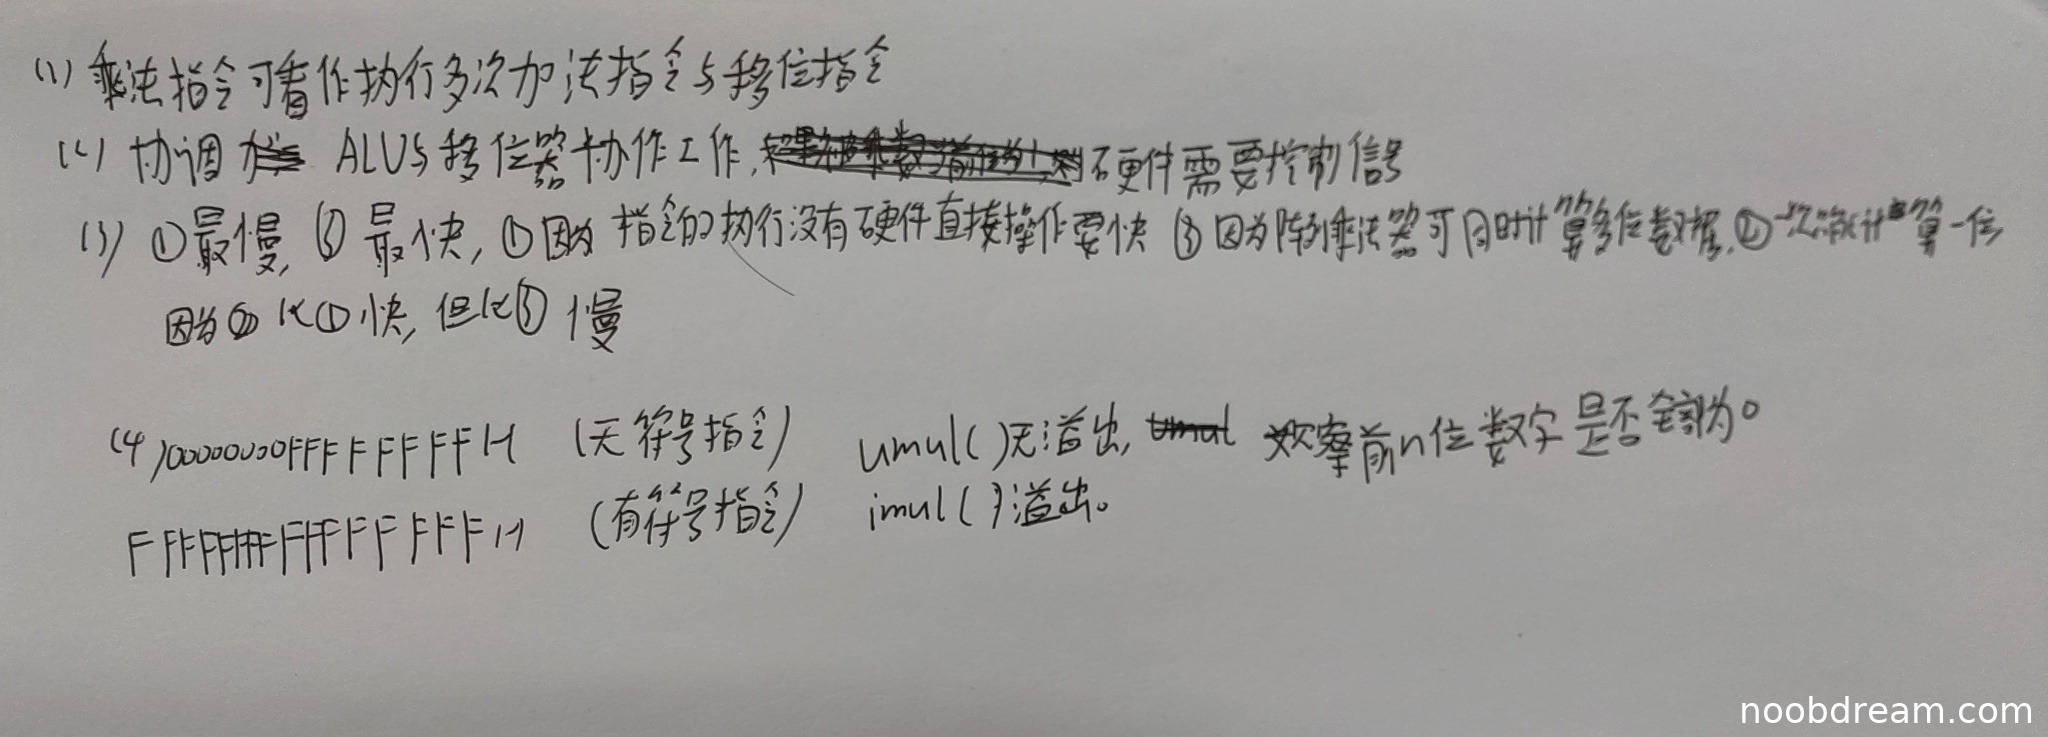 (1) 乘法指令可看作执行多次加法指令与移位指令
(2) 协调 ALU与移位器协作工作, 硬件需要控制信号
(3) ①最慢, ③最快, ①因为 指令的执行没有硬件直接操作要快 ③因为阵列乘法器可同时计算多位数据, ②一次只计算一位
因为② 比①快, 但比③ 慢
(4) 00000000FFFFFFFFH (无符号指令) umul( )无溢出, 观察前n位数字是否全部为0
FFFFFFFFFFFFFFFFH (有符号指令) imul( )溢出。
noobdream.com